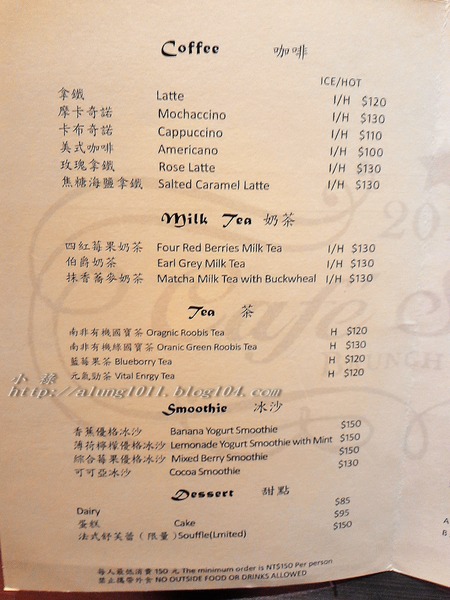 Coffee 咖啡
ICE/HOT
拿鐵 Latte I/H $120
摩卡奇諾 Mochaccino I/H $130
卡布奇諾 Cappuccino I/H $110
美式咖啡 Americano I/H $100
玫瑰拿鐵 Rose Latte I/H $130
焦糖海鹽拿鐵 Salted Caramel Latte I/H $130
Milk Tea 奶茶
四紅莓果奶茶 Four Red Berries Milk Tea I/H $130
伯爵奶茶 Earl Grey Milk Tea I/H $130
抹香蕎麥奶茶 Matcha Milk Tea with Buckwheal I/H $130
Tea 茶
南非有機國寶茶 Oragnic Roobis Tea H $120
南非有機綠國寶茶 Oranic Green Roobis Tea H $130
藍莓果茶 Blueberry Tea H $120
元氣勁茶 Vital Enrgy Tea H $120
小 
http://alung1011.blog104.com
Smoothie 冰沙
香蕉優格冰沙 Banana Yogurt Smoothie $150
薄荷檸檬優格冰沙 Lemonade Yogurt Smoothie with Mint $150
綜合莓果優格冰沙 Mixed Berry Smoothie $150
可可亞冰沙 Cocoa Smoothie $130
Dessert 甜點
Dairy $85
蛋糕 Cake $95
法式舒芙蕾(限量)Souffle(Lmited) $150
每人最低消費 150 元 The minimum order is NT$150 Per person
禁止攜帶外食 NO OUTSIDE FOOD OR DRINKS ALLOWED
20
Cafe
UNCH
A
B